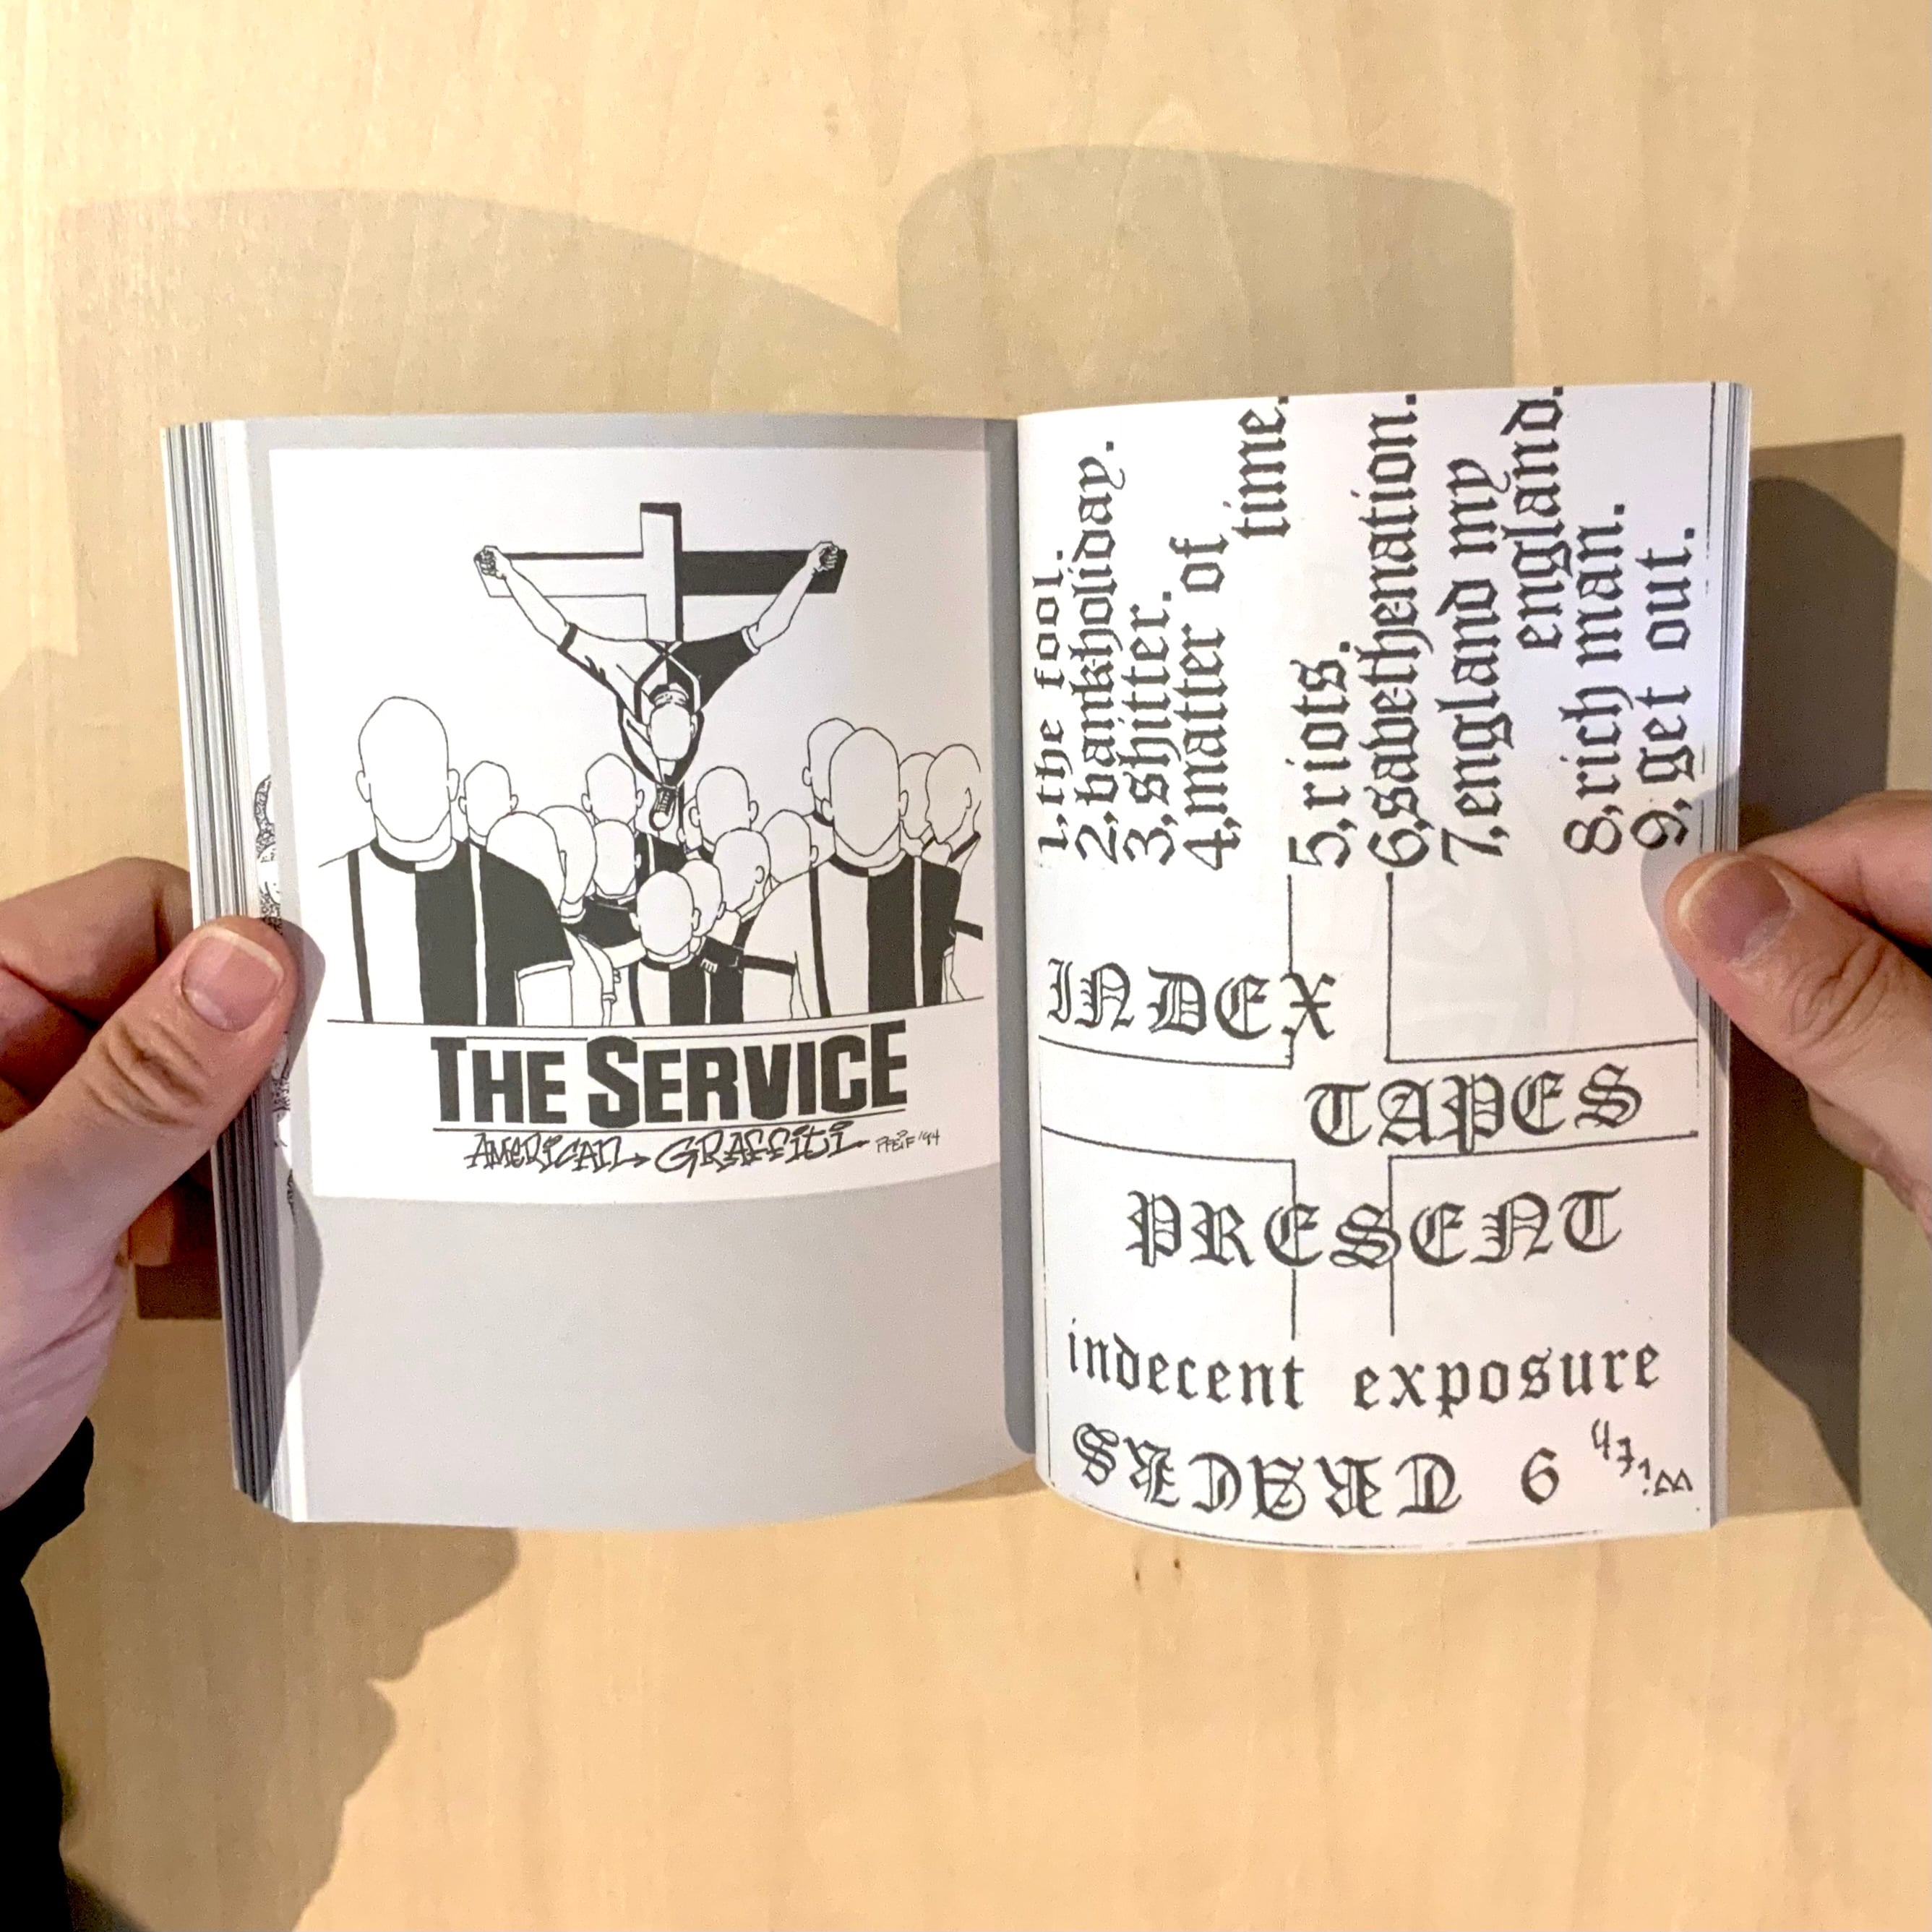 THE SERVICE
AMERICAN GRAFFITI PFEIF '94
1,the fool.
2,bankholiday.
3,shitter.
4,matter of
time.
5,riots.
6,savethenation.
7,england my
england.
8,rich man.
9,get out.
INDEX
TAPES
PRESENT
indecent exposure
with 9 TRACKS